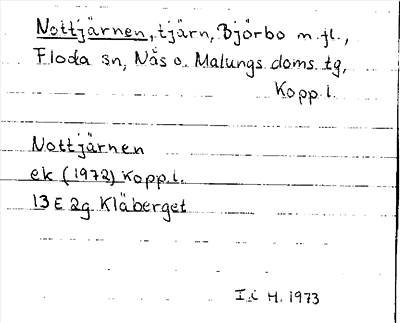 Nottjärnen, tjärn, Björbo m.fl.,
Floda sn, Näs o. Malungs doms. tg,
Kopp. l.
Nottjärnen
ek (1972) Kopp. l.
13 E 2g Kläberget
I.i H. 1973